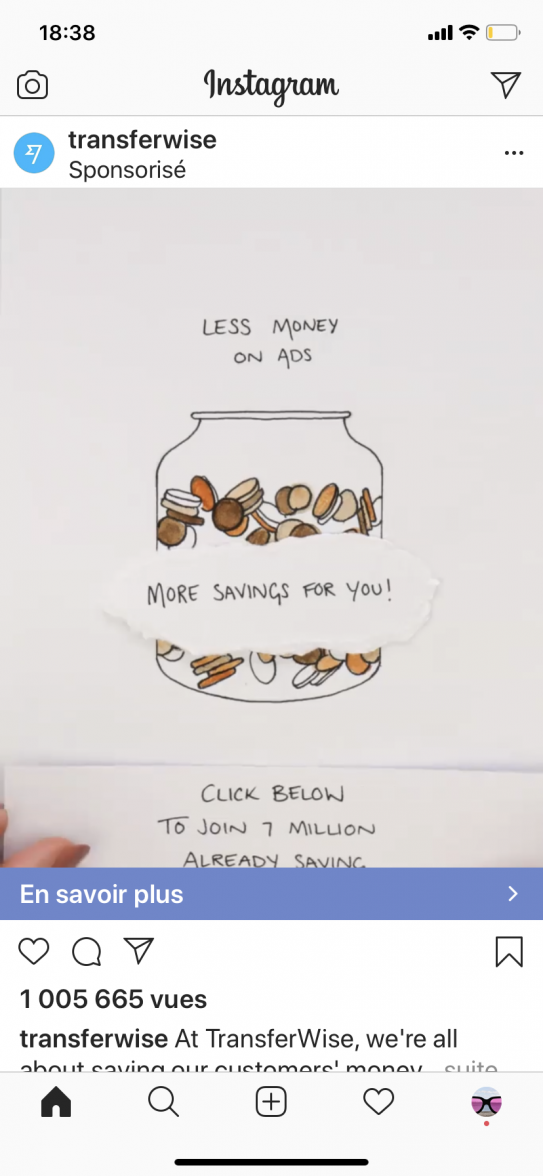 18:38
Instagram
transferwise
Sponsorisé
LESS MONEY
ON ADS
MORE SAVINGS FOR YOU!
CLICK BELOW
TO JOIN 7 MILLION
ALREADY SAVING
En savoir plus
1 005 665 vues
transferwise At TransferWise, we're all
about saving our customers' money... suite